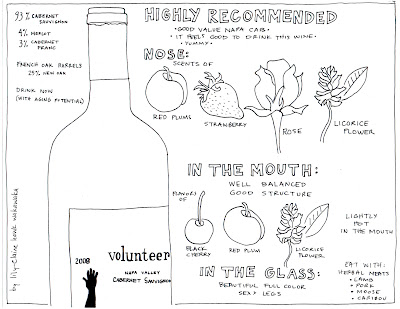 93% CABERNET
SAUVIGNON
4% MERLOT
3% CABERNET
FRANC
FRENCH OAK BARRELS
25% NEW OAK
DRINK NOW
(WITH AGING POTENTIAL)
HIGHLY RECOMMENDED
• GOOD VALUE NAPA CAB •
• IT FEELS GOOD TO DRINK THIS WINE •
• YUMMY •
NOSE:
SCENTS OF
RED PLUMS
STRAWBERRY
ROSE
LICORICE
FLOWER
IN THE MOUTH:
WELL BALANCED
GOOD STRUCTURE
FLAVORS
OF
BLACK
CHERRY
RED PLUM
LICORICE
FLOWER
LIGHTLY
HOT
IN THE MOUTH
IN THE GLASS:
BEAUTIFUL FULL COLOR
SEXY LEGS
EAT WITH:
HERBAL MEATS
• LAMB
• PORK
• MOOSE
• CARIBOU
2008
volunteer
NAPA VALLEY
CABERNET SAUVIGNON
by lily-elaine hawk wakawaka